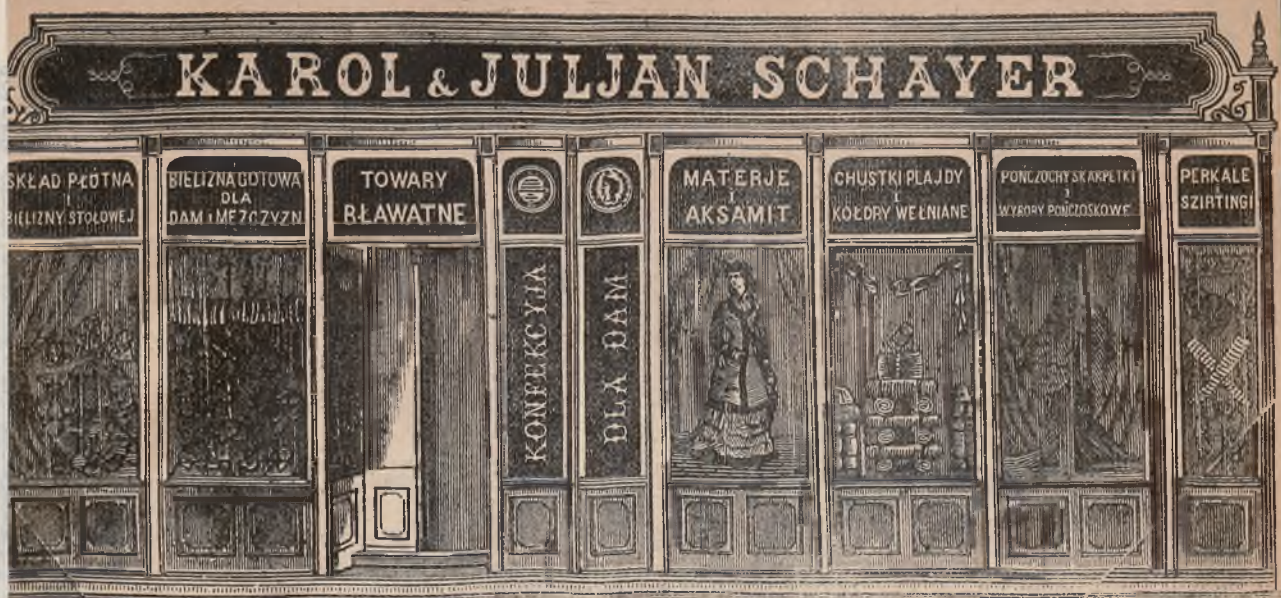 KAROL & JULJAN SCHAYER
SKŁAD PŁÓTNA
I
BIELIZNY STOŁOWEJ
BIELIZNA GOTOWA
DLA
DAM I MEZCZYZN
TOWARY
BŁAWATNE
KONFEKCYJA
DLA DAM
MATERJE
I
AKSAMIT
CHUSTKI PLAJDY
I
KOŁDRY WEŁNIANE
POŃCZOCHY SKARPETKI
I
WYROBY PONCZOSKOWE
PERKALE
I
SZIRTINGI